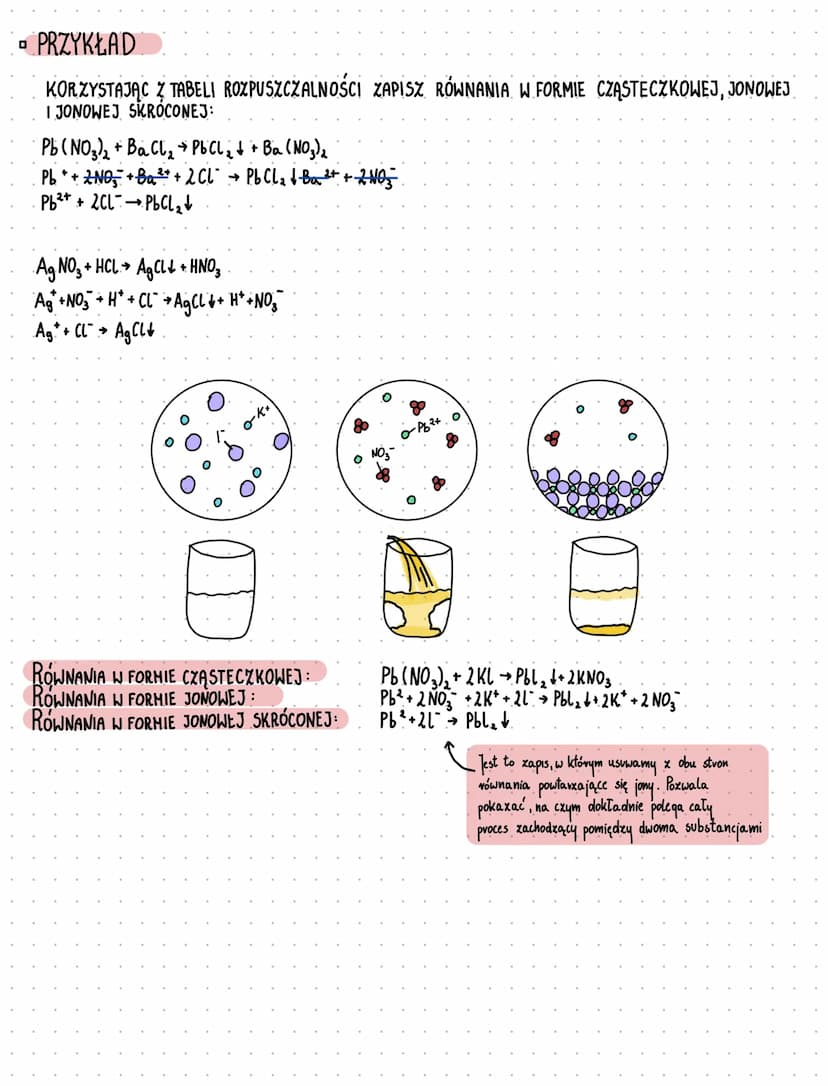 PRZYKŁAD
KORZYSTAJĄC Z TABELI ROZPUSZCZALNOŚCI ZAPISZ RÓWNANIA W FORMIE CZĄSTECZKOWEJ, JONOWEJ
I JONOWEJ SKRÓCONEJ:
Pb(NO₃)₂ + BaCl₂ → PbCl₂↓ + Ba(NO₃)₂
Pb⁺ + 2NO₃⁻ + Ba²⁺ + 2Cl⁻ → PbCl₂↓ Ba²⁺ + 2NO₃⁻
Pb²⁺ + 2Cl⁻ → PbCl₂↓
AgNO₃ + HCl → AgCl↓ + HNO₃
Ag⁺ + NO₃⁻ + H⁺ + Cl⁻ → AgCl↓ + H⁺ + NO₃⁻
Ag⁺ + Cl⁻ → AgCl↓
K⁺
I⁻
Pb²⁺
NO₃⁻
RÓWNANIA W FORMIE CZĄSTECZKOWEJ: Pb(NO₃)₂ + 2KI → PbI₂↓ + 2KNO₃
RÓWNANIA W FORMIE JONOWEJ: Pb² + 2NO₃⁻ + 2K⁺ + 2I⁻ → PbI₂↓ + 2K⁺ + 2NO₃⁻
RÓWNANIA W FORMIE JONOWEJ SKRÓCONEJ: Pb² + 2I⁻ → PbI₂↓
Jest to zapis, w którym usuwamy z obu stron
równania powtarzające się jony. Pozwala
pokazać, na czym dokładnie polega cały
proces zachodzący pomiędzy dwoma substancjami